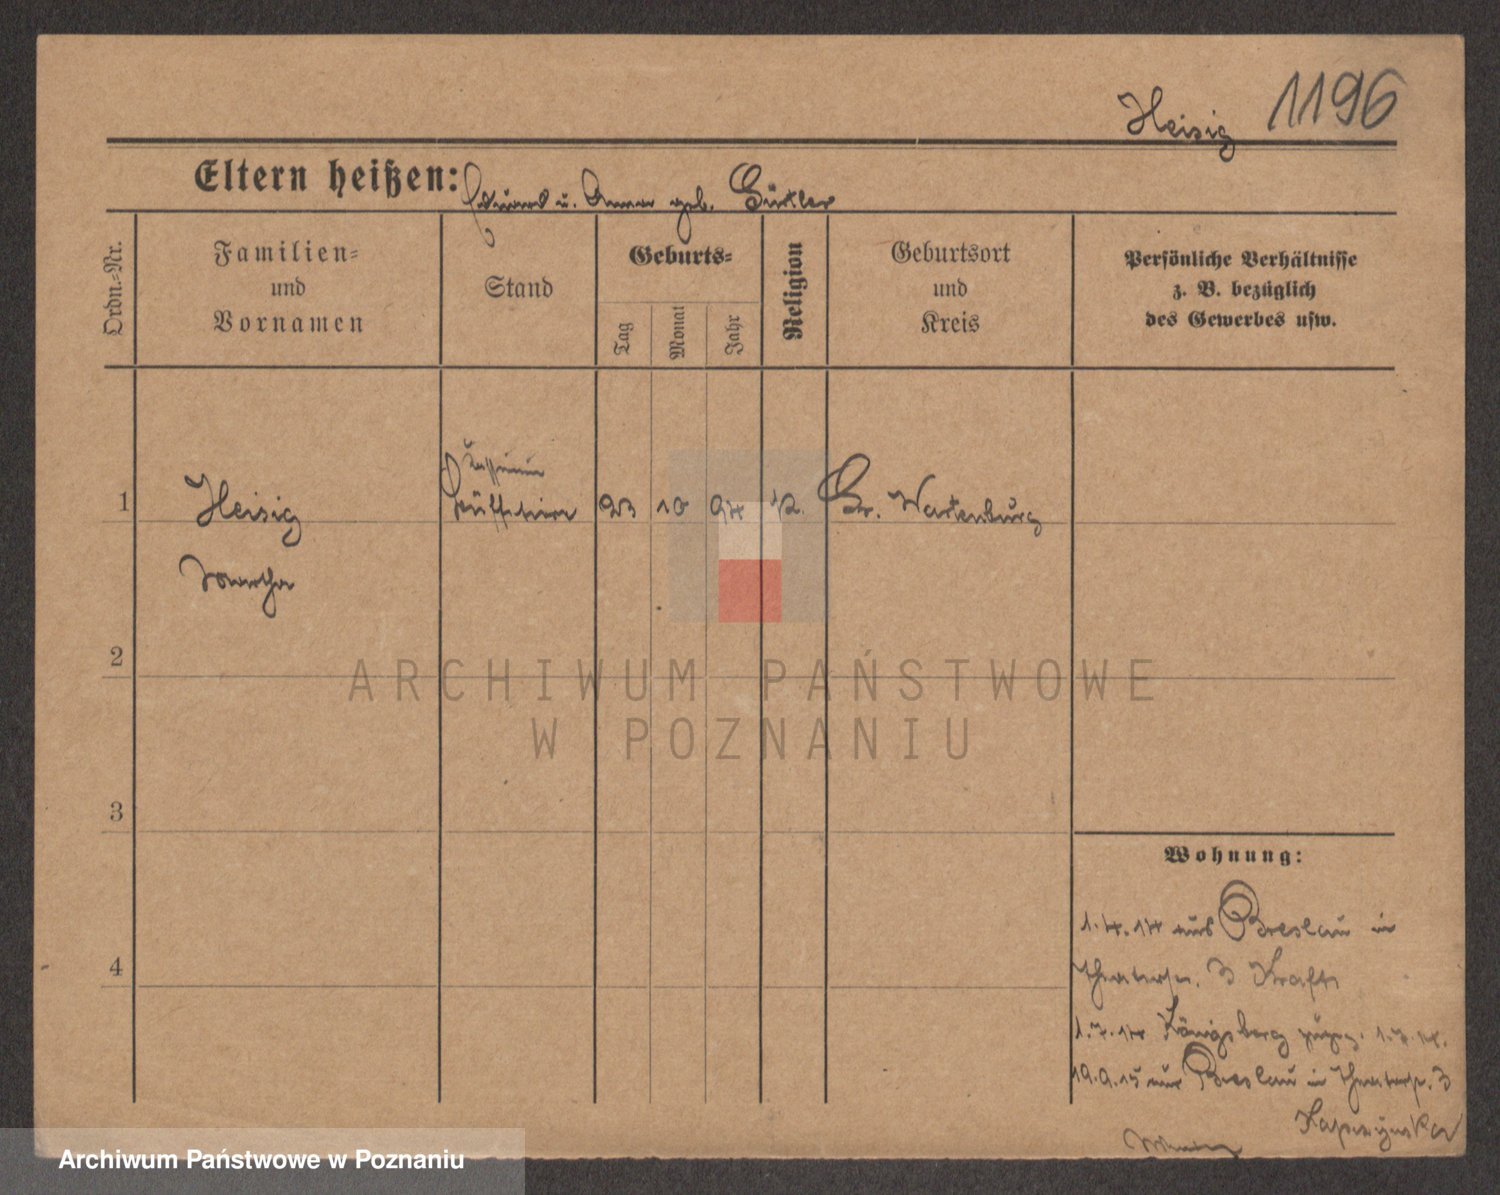 Heisig 1196
Eltern heißen: u. Anna geb. Gürtler
Ordn.-Nr.
Familien-
und
Vornamen
Stand
Geburts-
Tag
Monat
Jahr
Religion
Geburtsort
und
Kreis
Persönliche Verhältnisse
z. B. bezüglich
des Gewerbes usw.
1 Heisig 23 10 94 k. Gr. Wartenburg
Martha
2
3
4
ARCHIWUM PAŃSTWOWE
W POZNANIU
Wohnung:
1.4.14 aus Breslau in
Theaterstr. 3 Kraft
1.7.14 Königsberg 1.7.14.
19.9.15 aus Breslau in Theaterstr. 3
Kapczynska
Archiwum Państwowe w Poznaniu